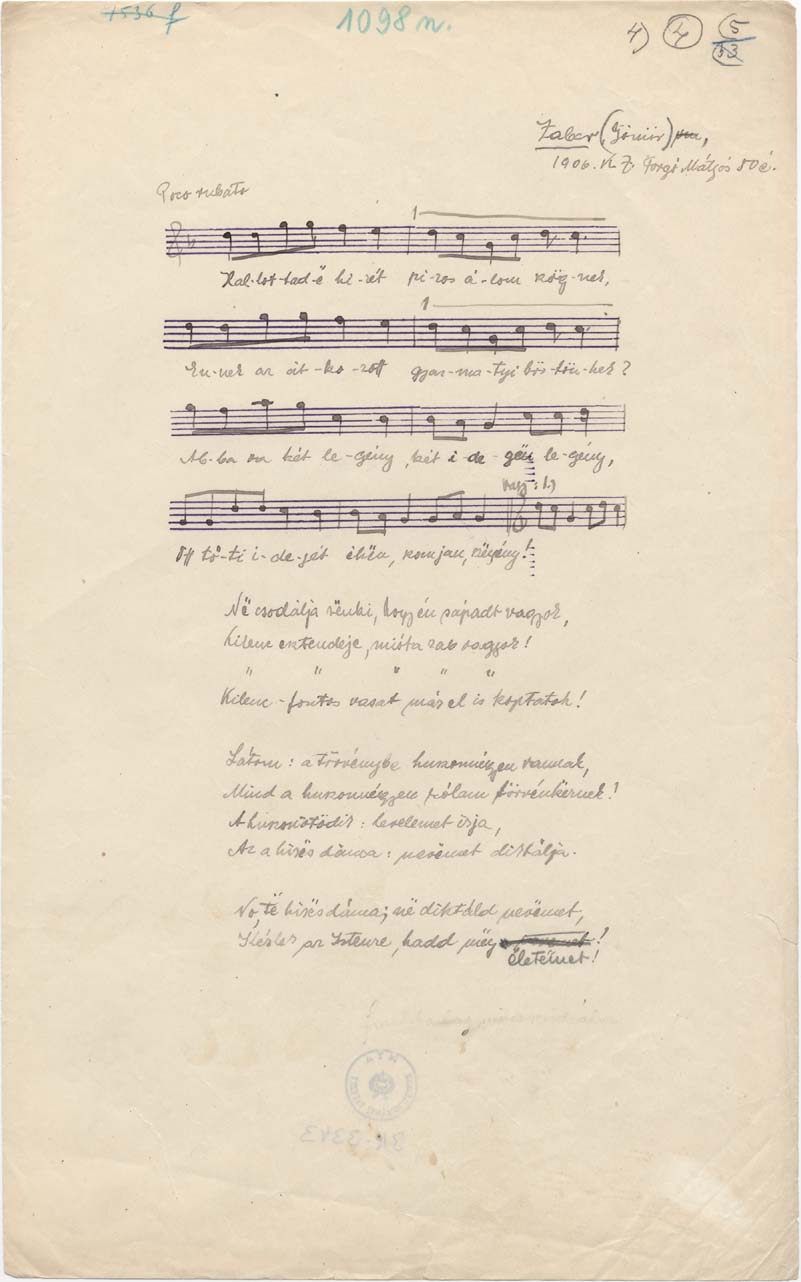 1536 f
1098 n.
4) 4 5
53
Zabar (Gömör) vm,
1906. Forgó Mátyás 50 é.
Poco rubato
1
Hal-lot-tad-ë hi-rét pi-ros á-lom kög-nek,
1
En-nek az át-ko-zott gyar-ma-tyi bös-tön-nek?
Ab-ba va két le-gény, két i-de-gën le-gény,
vagy: 1.)
Ott töl-ti i-de-jét éhën, szomjan, szëgény!
Në csodálja sënki, hogy én sápadt vagyok,
Kilenc esztendeje, mióta rab vagyok!
" " " " "
Kilenc-fontos vasat már el is koptatok!
Látom: a törvénybe huszonnégyen vannak,
Mind a huszonnégyen rólam törvénkëznek!
A huszonötödik: levelemet írja,
Az a hirës dáma: nevemet diktálja.
No, të hirës dáma; në diktáld nevemet,
Kérlek az Istenre, hadd mëg !
életëmet!
BR-3343